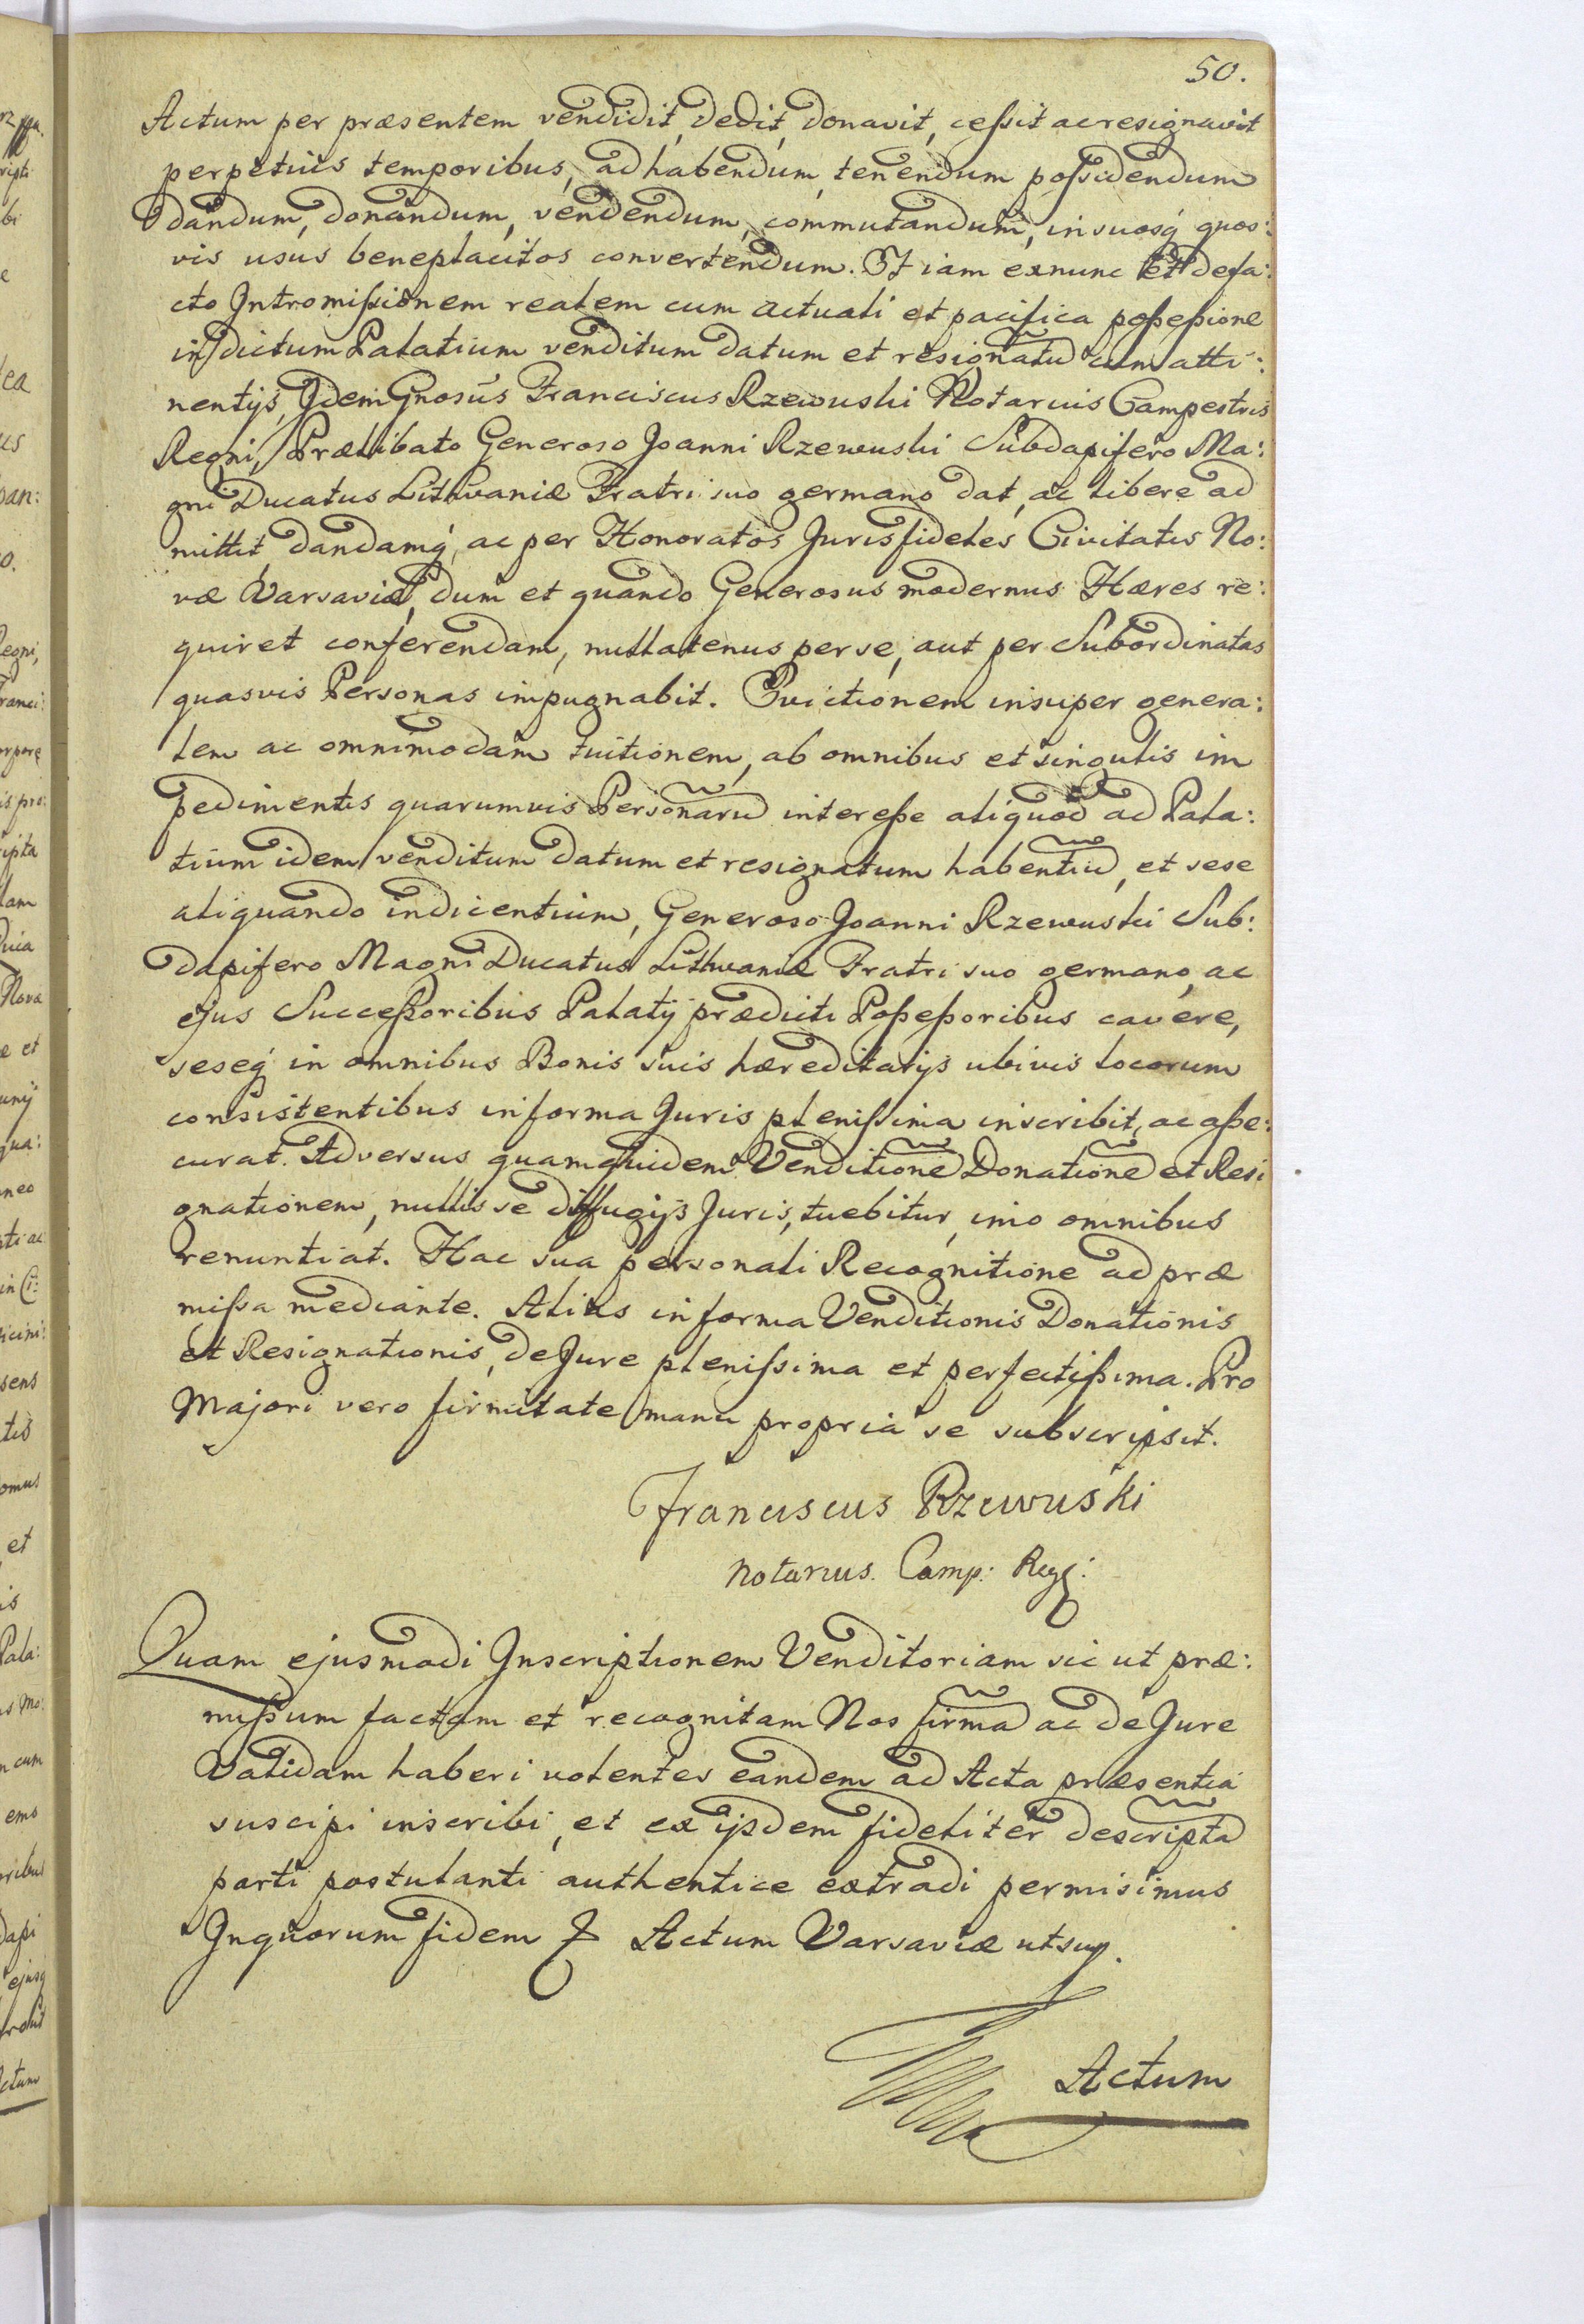 50.
Actum per præsentem vendidit, dedit, donavit, cessit ac resignavit
perpetuis temporibus, ad habendum, tenendum possidendum
dandum, donandum, vendendum, commutandum, in suosq́ quos:
vis usus beneplacitos convertendum. Et iam exnunc et defa:
cto Intromissionem realem cum actuali et pacifica possessione
in dictum Palatium venditum datum et resignatũ cum atti:
nentijs, Idem Gnosus Franciscus Rzewuski Notarius Campestris
Regni, Prælibato Generoso Joanni Rzewuski Subdapifero Ma:
gni Ducatus Lithvaniæ Fratri suo germano dat, ac libere ad
mittit dandamq́, ac per Honoratos Jurisfideles Civitatis No:
væ Varsaviæ, dum et quando Generosus modernus Hæres re:
quiret conferendam, nullatenus per se, aut per Subordinatas
quasvis Personas impugnabit. Evictionem insuper genera:
lem ac omnimodam tuitionem, ab omnibus et singulis im
pedimentis quarumvis Personarũ interesse aliquod ad Pala:
tium idem venditum datum et resignatum habentiũ, et sese
aliquando indicentium, Generoso Joanni Rzewuski Sub:
dapifero Magni Ducatus Lithvaniæ Fratri suo germano, ac
ejus Successoribus Palatij prædicti Possessoribus cavere,
seseq́ in omnibus Bonis suis hæreditarijs ubivis locorum
consistentibus in forma Juris plenissima inscribit, ac asse:
curat. Adversus quamquidem Venditionẽ Donationẽ et Resi
gnationem, nullis se diffugijs Juris, tuebitur, imo omnibus
renuntiat. Hac sua personali Recognitione ad præ
missa mediante. Alias in forma Venditionis Donationis
et Resignationis, de Jure plenissima et perfectissima. Pro
Majori vero firmitate manu propria se subscripsit.
Franciscus Rzewuski
Notarius. Camp: Reg:
Quam ejusmodi Inscriptionem Venditoriam sic ut præ:
missum factam et recognitam Nos firmã ac de Jure
Validam haberi volentes eandem ad Acta præsentia
suscipi inscribi, et ex ijsdem fideliter descriptã
parti postulanti authentice extradi permisimus
Inquorum fidem Actum Varsaviæ ut sup.
Actum